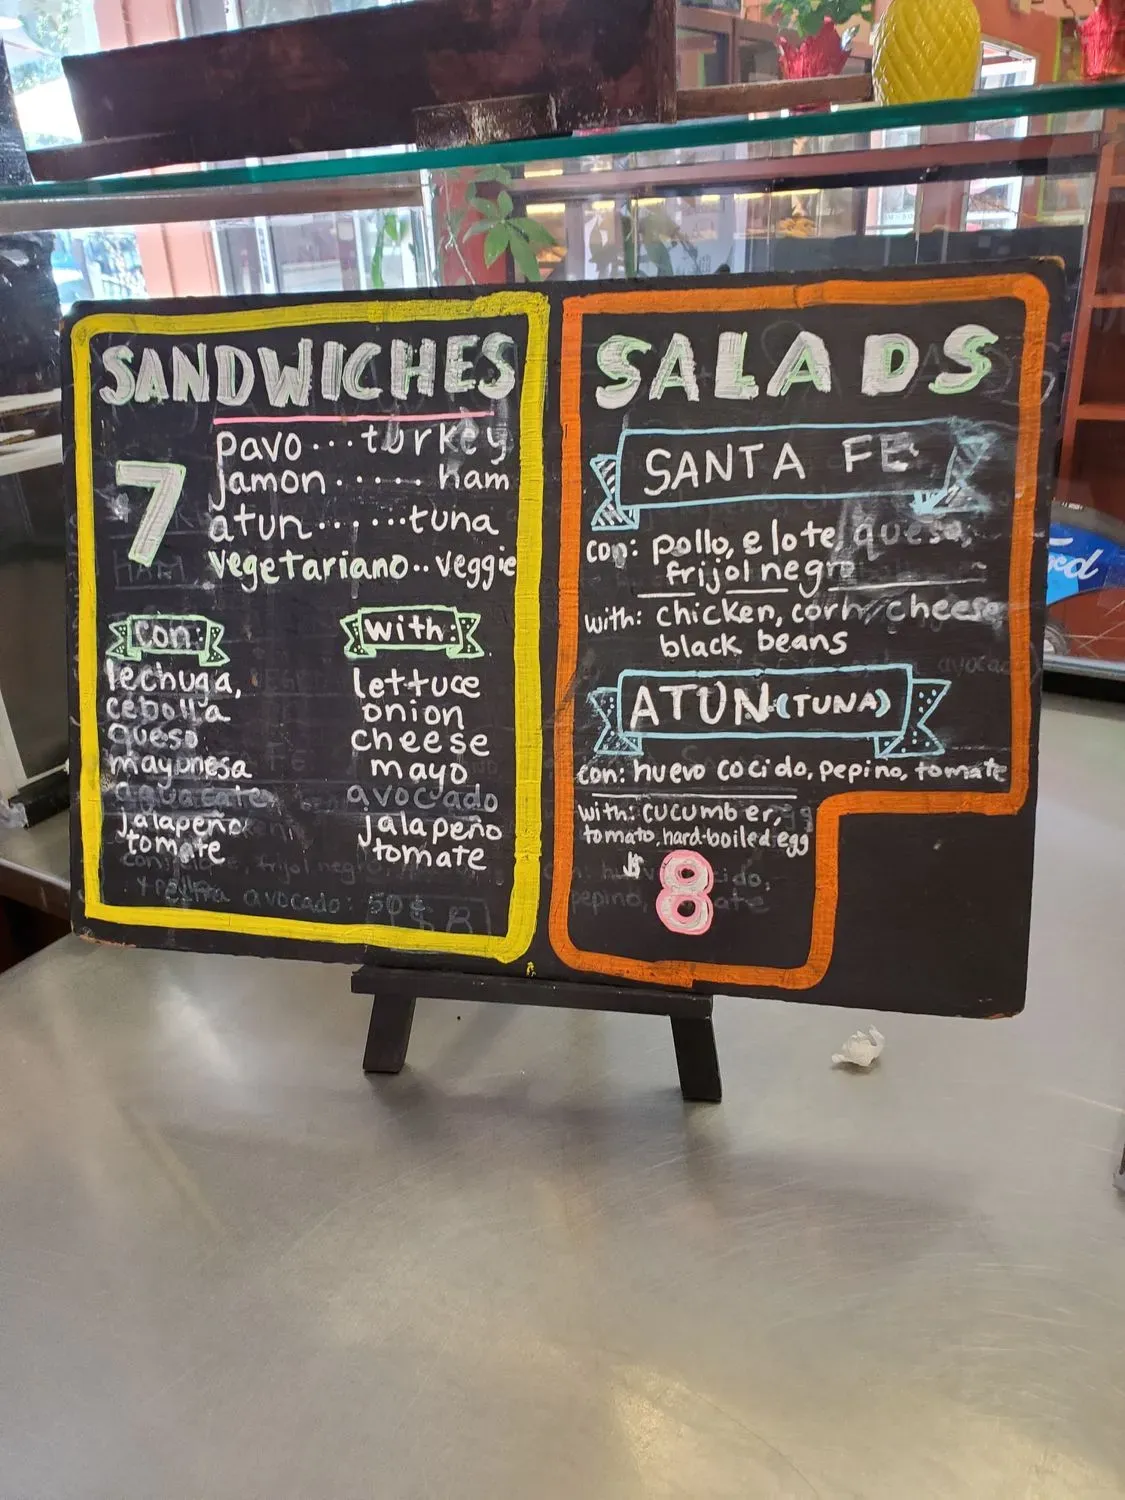 SANDWICHES
7
pavo...turkey
jamon..... ham
atun......tuna
vegetariano..veggie
con:
lechuga,
cebolla
queso
mayonesa
aguacate
jalapeño
tomate
with:
lettuce
onion
cheese
mayo
avocado
jalapeño
tomate
extra avocado: 50¢
$8
SALADS
SANTA FE
con: pollo, elote, queso,
frijol negro
with: chicken, corn, cheese
black beans
ATUN (TUNA)
con: huevo cocido, pepino, tomate
with: cucumber,
tomato, hard-boiled egg
$8